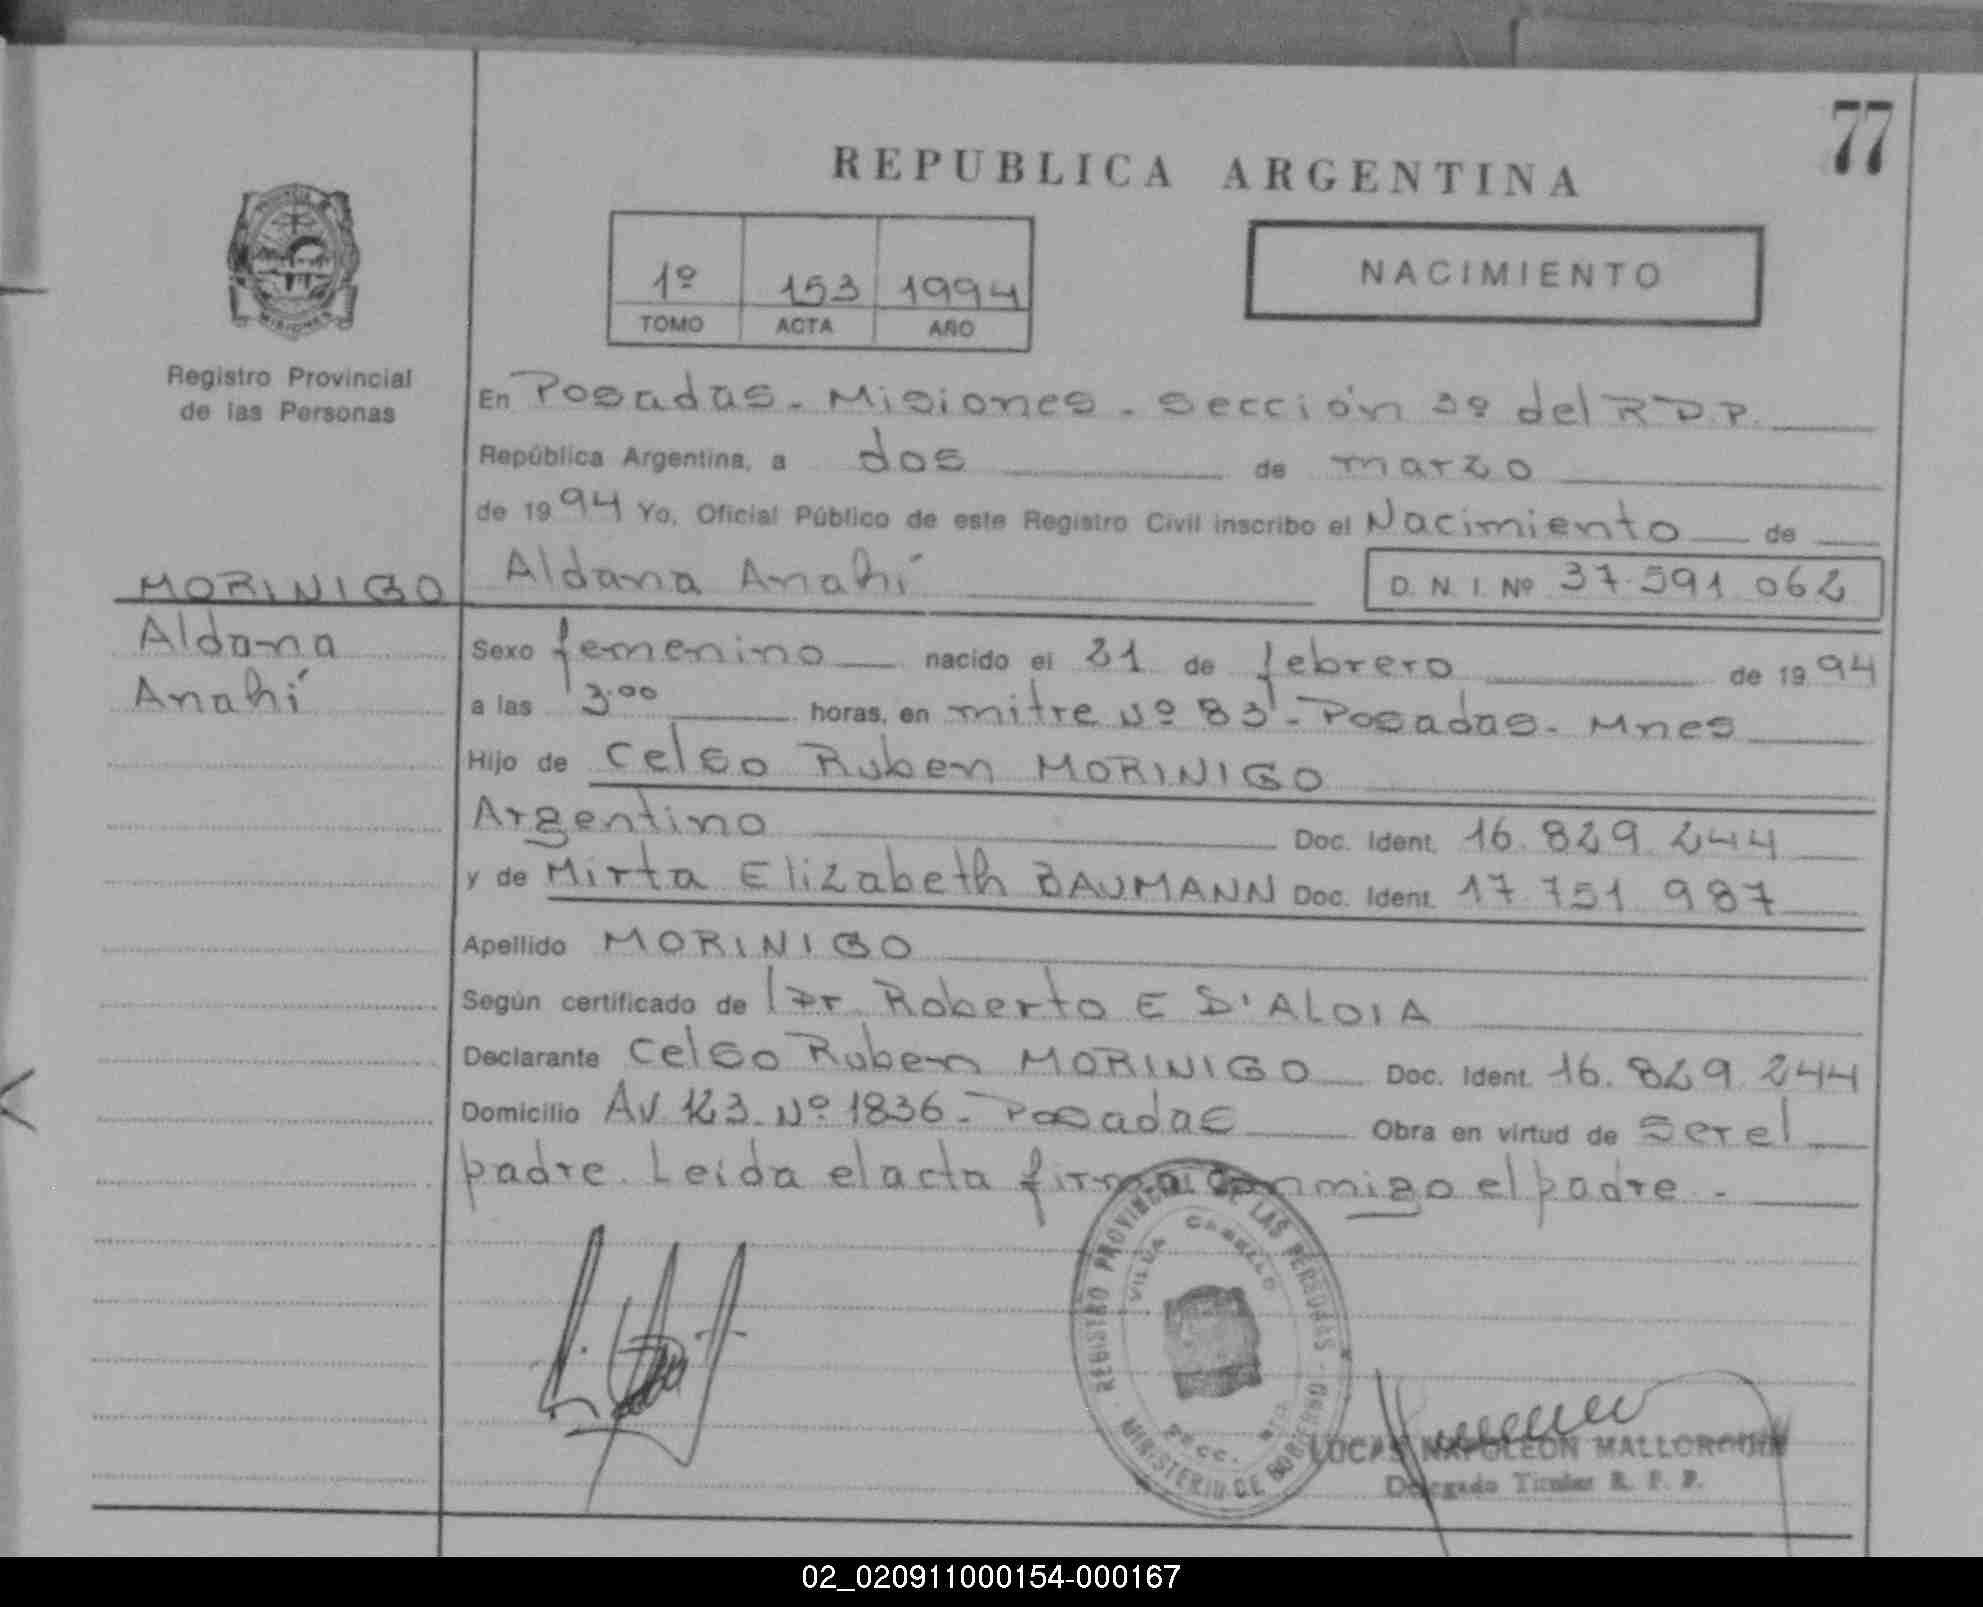 77
REPUBLICA ARGENTINA
1º 153 1994
TOMO ACTA AÑO
NACIMIENTO
PROVINCIA
MISIONES
Registro Provincial
de las Personas
En Posadas - Misiones - Sección 3º del R.P.P.
República Argentina, a dos de marzo
de 1994 Yo, Oficial Público de este Registro Civil inscribo el Nacimiento de
MORINIGO Aldana Anahí D. N. I. Nº 37.591.062
Aldana
Anahí
Sexo femenino nacido el 21 de febrero de 1994
a las 3.00 horas, en mitre Nº 83 - Posadas - Mnes
Hijo de Celso Ruben MORINIGO
Argentino Doc. Ident. 16.829.244
y de Mirta Elizabeth BAUMANN Doc. Ident. 17.751.987
Apellido MORINIGO
Según certificado de Dr. Roberto E D'ALOIA
Declarante Celso Ruben MORINIGO Doc. Ident. 16.829.244
Domicilio Av. 123 Nº 1836 - Posadas Obra en virtud de ser el
padre. Leída el acta firma conmigo el padre -
REGISTRO PROVINCIAL DE LAS PERSONAS
VILLA CABELLO
MINISTERIO DE GOBIERNO
LUCAS NAPOLEON MALLORQUIN
Delegado Titular R. P. P.
02_020911000154-000167